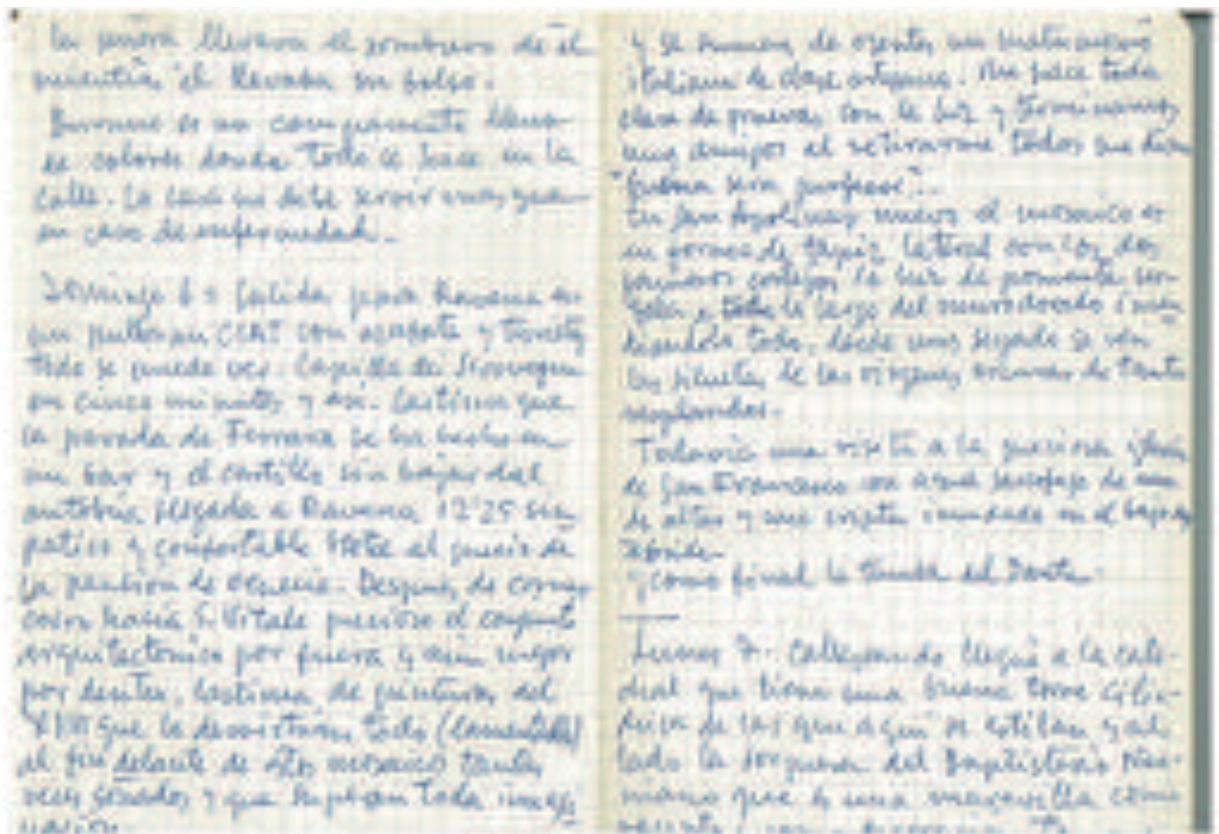 la señora llevaba el sombrero de él
mientras él llevaba su bolso.
Burano es un campamento lleno
de colores donde todo se hace en la
calle. La casa no debe servir mas que
en caso de enfermedad.
Domingo 6 = Salida para Ravena en
un pullman CIAT con azafata y
todo se puede ver. Capilla de Scrovegni
en cinco minutos y así. Lastima que
la parada de Ferrara se ha hecho en
un bar y el castillo sin bajar del
autobús llegada a Ravena 12'25 sim
patico y confortable Hotel al precio de
la pensión de Venecia. Después de comer
hacia S. Vitale precioso el conjunto
arquitectonico por fuera y aun mejor
por dentro, lastima de pinturas del
XVIII que lo desvirtúan todo (lamentable)
al fin delante de estos mosaicos tantas
veces soñados y que superan toda imagi
nación.
y se suman de oyentes un matrimonio
italiano de clase. Me hace toda
clase de pruebas con la luz y terminamos
muy amigos al retirarme todos me dicen
"buona sera professore"..
En San Apolinar nuevo el mosaico es
en forma de tapiz lateral con los dos
cortejos la luz de poniente
a todo lo largo del muro dorado
todo, desde uno se ven
las siluetas de las virgenes de tanto
resplandor.
Todavia una visita a la preciosa iglesia
de San Francisco con aquel sarcofago de
de altar y una cripta inundada en el bajo
abside.
y como final la tumba del Dante.
Lunes 7.- Callejeando llegué a la cate-
dral que tiene una buena torre cilin-
drica de las que aqui se estilan y al
lado la sorpresa del Baptisterio Neo-
niano que es una maravilla como